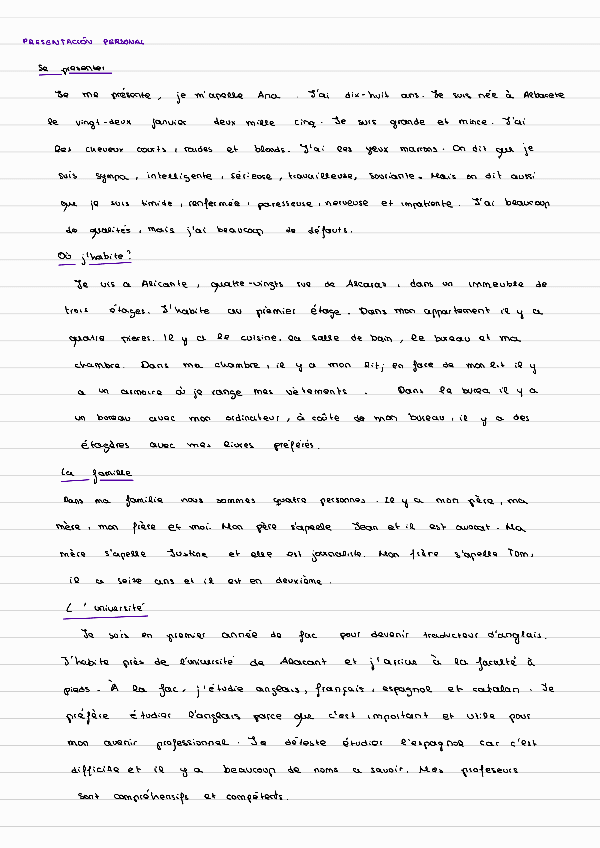 PRESENTACIÓN PERSONAL
Se presenter
Je me présente, je m'apelle Ana. J'ai dix-huit ans. Je suis née à Albacete
le vingt-deux janvier deux mille cinq. Je suis grande et mince. J'ai
les cheveux courts, raides et blonds. J'ai les yeux marrons. On dit que je
suis sympa, intelligente, sérieuse, travailleuse, souriante. Mais on dit aussi
que je suis timide, renfermée, paresseuse, nerveuse et impatiente. J'ai beaucoup
de qualités, mais j'ai beaucoup de défauts.
Où j'habite?
Je vis a Alicante, quatre-vingts rue de Alcaraz, dans un immeuble de
trois étages. J'habite au premier étage. Dans mon appartement il y a
quatre pieces. Il y a le cuisine, la salle de bain, le bureau et ma
chambre. Dans ma chambre, il y a mon lit; en face de mon lit il y
a un armoire où je range mes vetements. Dans le burea il y a
un bureau avec mon ordinateur, à coûte de mon bureau, il y a des
étagères avec mes livres préférés.
La famille
Dans ma famille nous sommes quatre personnes. Il y a mon père, ma
mère, mon frère et moi. Mon père s'apelle Jean et il est avocat. Ma
mère s'apelle Justine et elle est journaliste. Mon frère s'apelle Tom,
il a seize ans et il est en deuxième.
L'université
Je suis en premier année de fac pour devenir traducteur d'anglais.
J'habite près de l'université de Alacant et j'arrive à la faculté à
pieds. À la fac, j'étudie anglais, français, espagnol et catalan. Je
préfère étudier l'anglais parce que c'est important et utile pour
mon avenir professionnel. Je déteste étudier l'espagnol car c'est
difficile et il y a beaucoup de noms a savoir. Mes profeseurs
sont compréhensifs et compétents.